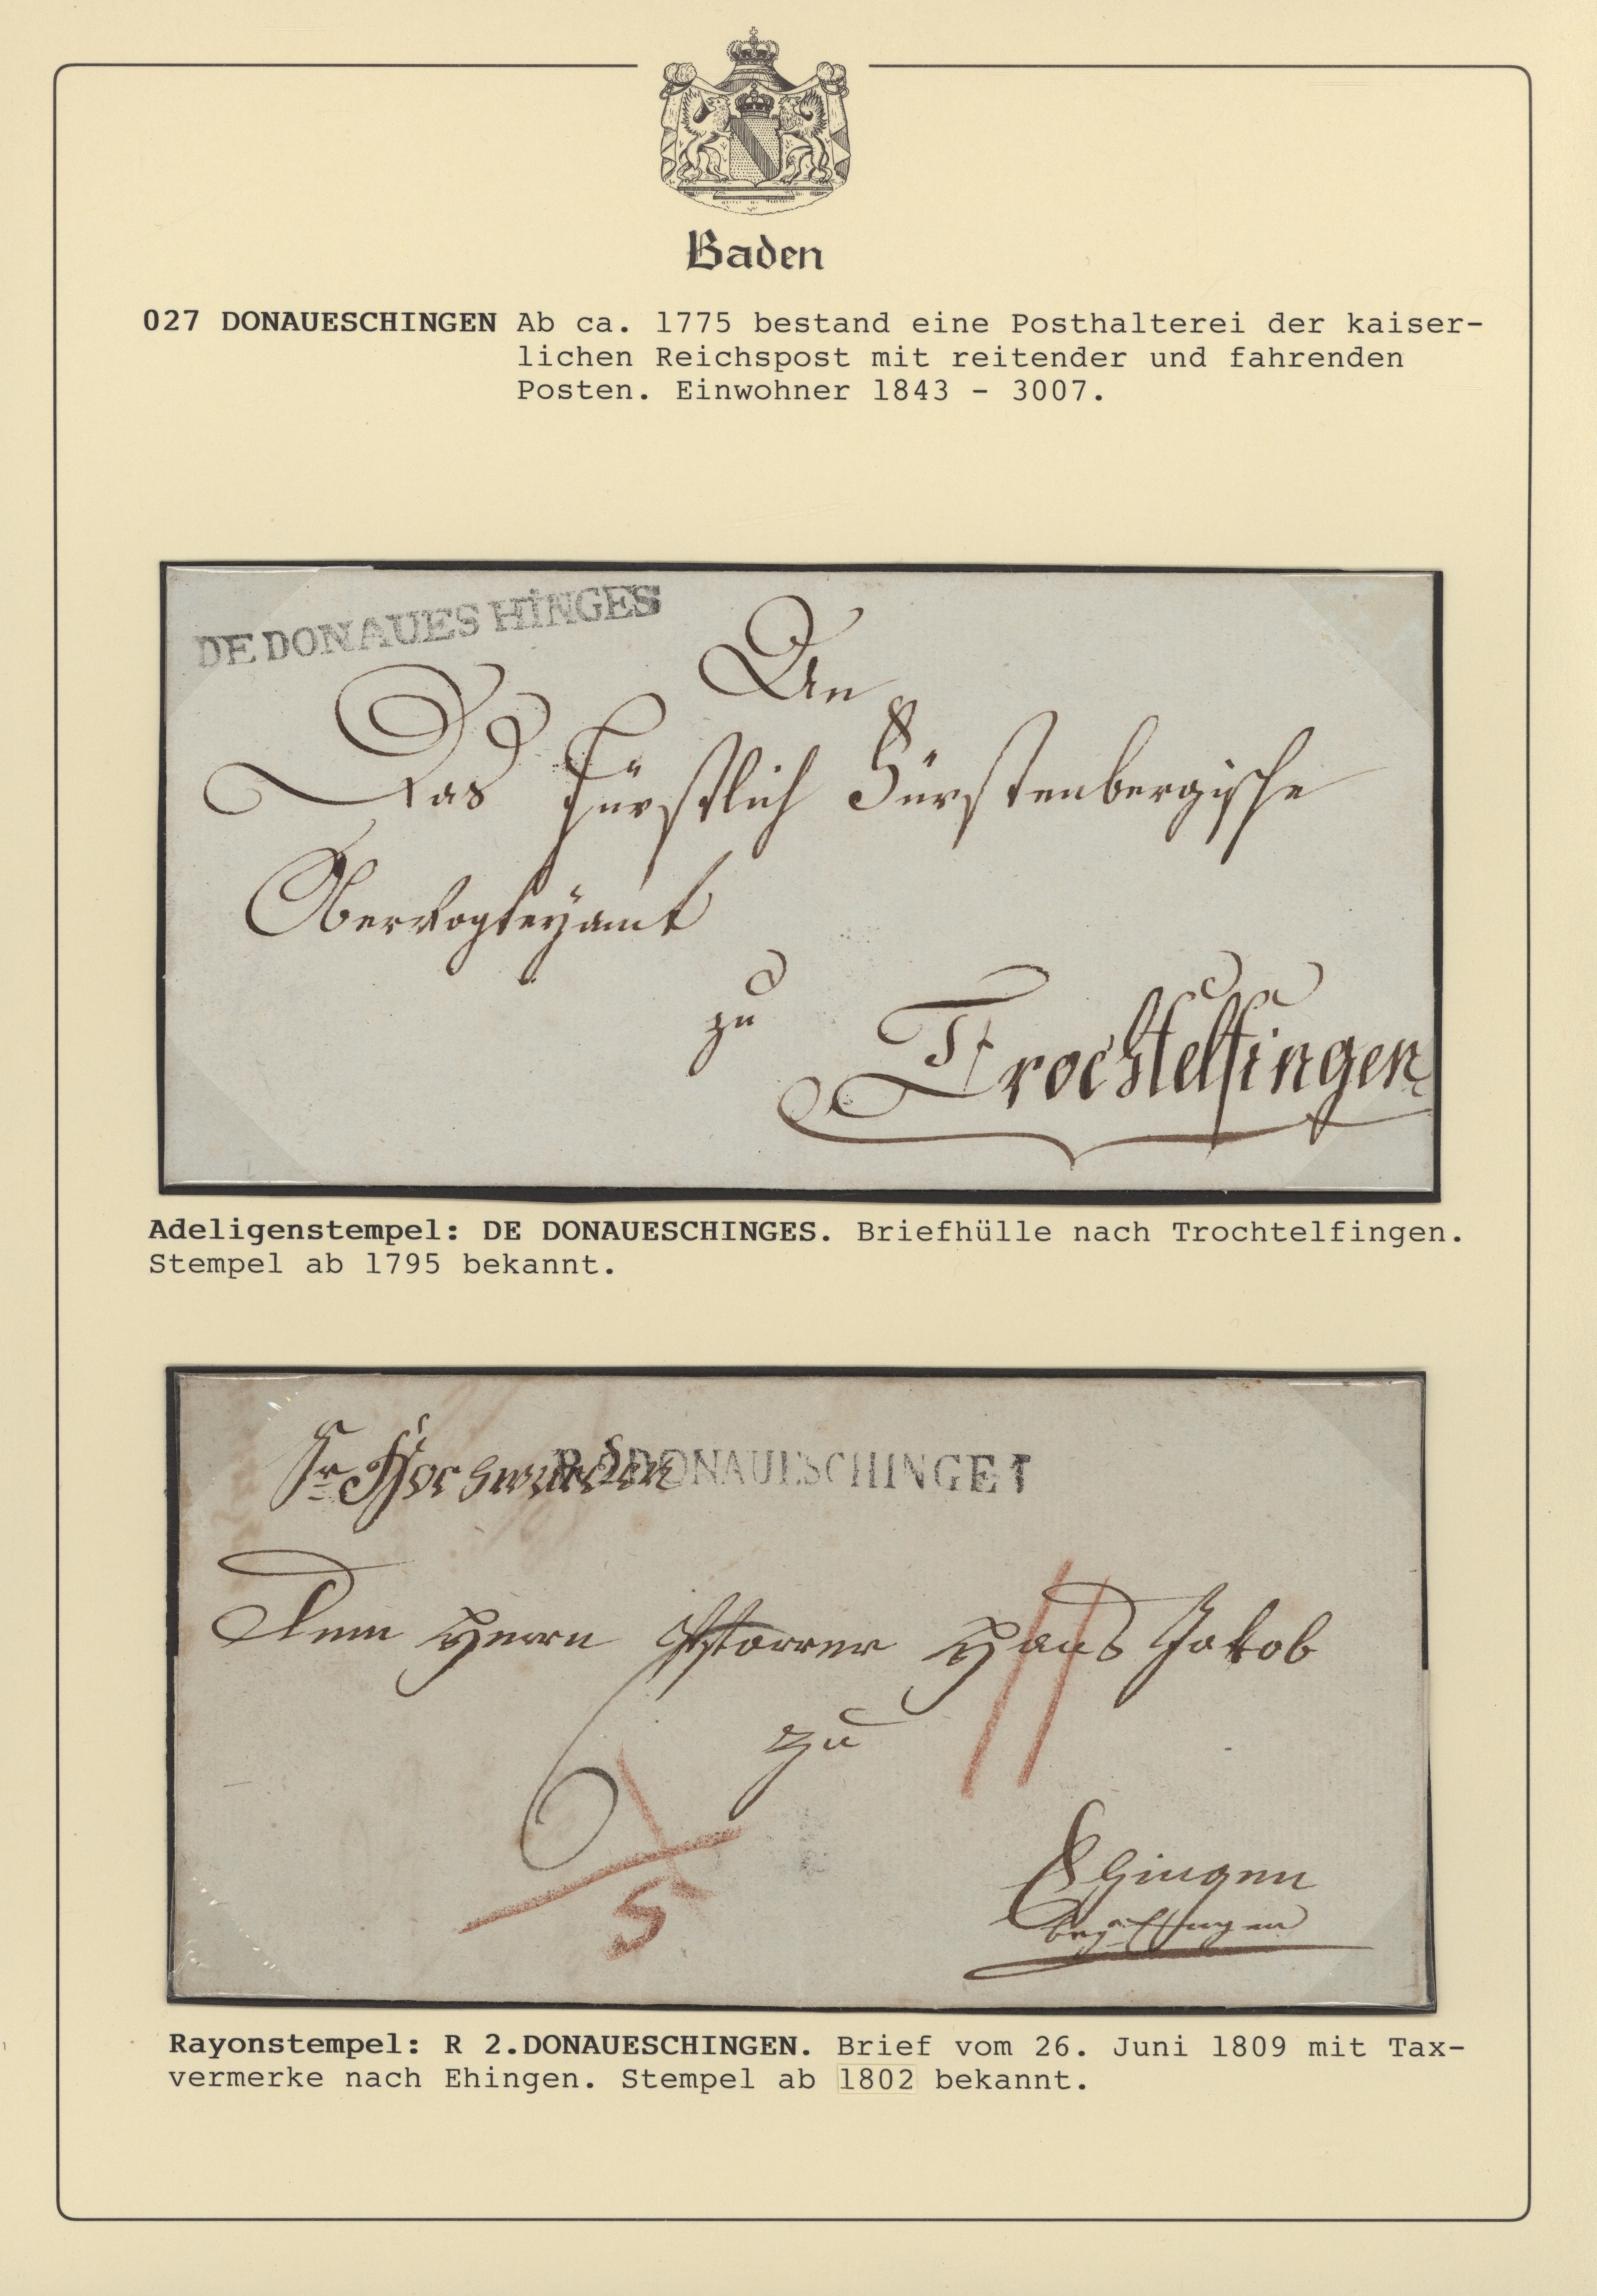 Baden
027 DONAUESCHINGEN Ab ca. 1775 bestand eine Posthalterei der kaiser-
lichen Reichspost mit reitender und fahrenden
Posten. Einwohner 1843 - 3007.
DE DONAUES HINGES
An
Das Fürstlich Fürstenbergische
Obervogteyamt
zu
Trochtelfingen
Adeligenstempel: DE DONAUESCHINGES. Briefhülle nach Trochtelfingen.
Stempel ab 1795 bekannt.
Sr Hochwürden
R 2 DONAUESCHINGE
Dem Herrn Pfarrer Hans Jakob
zu
Ehingen
5
Rayonstempel: R 2.DONAUESCHINGEN. Brief vom 26. Juni 1809 mit Tax-
vermerke nach Ehingen. Stempel ab 1802 bekannt.